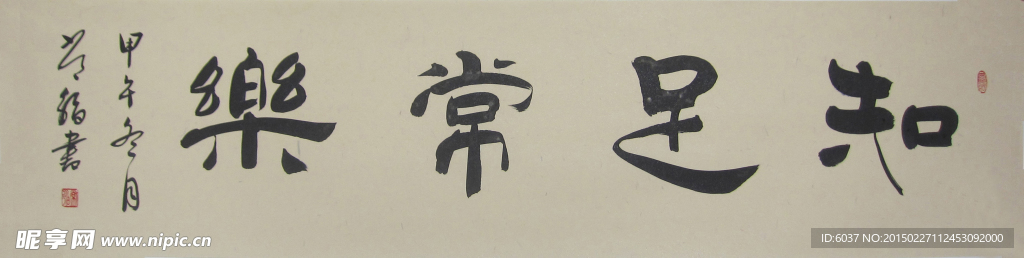 知足常樂
甲午冬月
昵享网 www.nipic.cn
ID:6037 NO:20150227112453092000